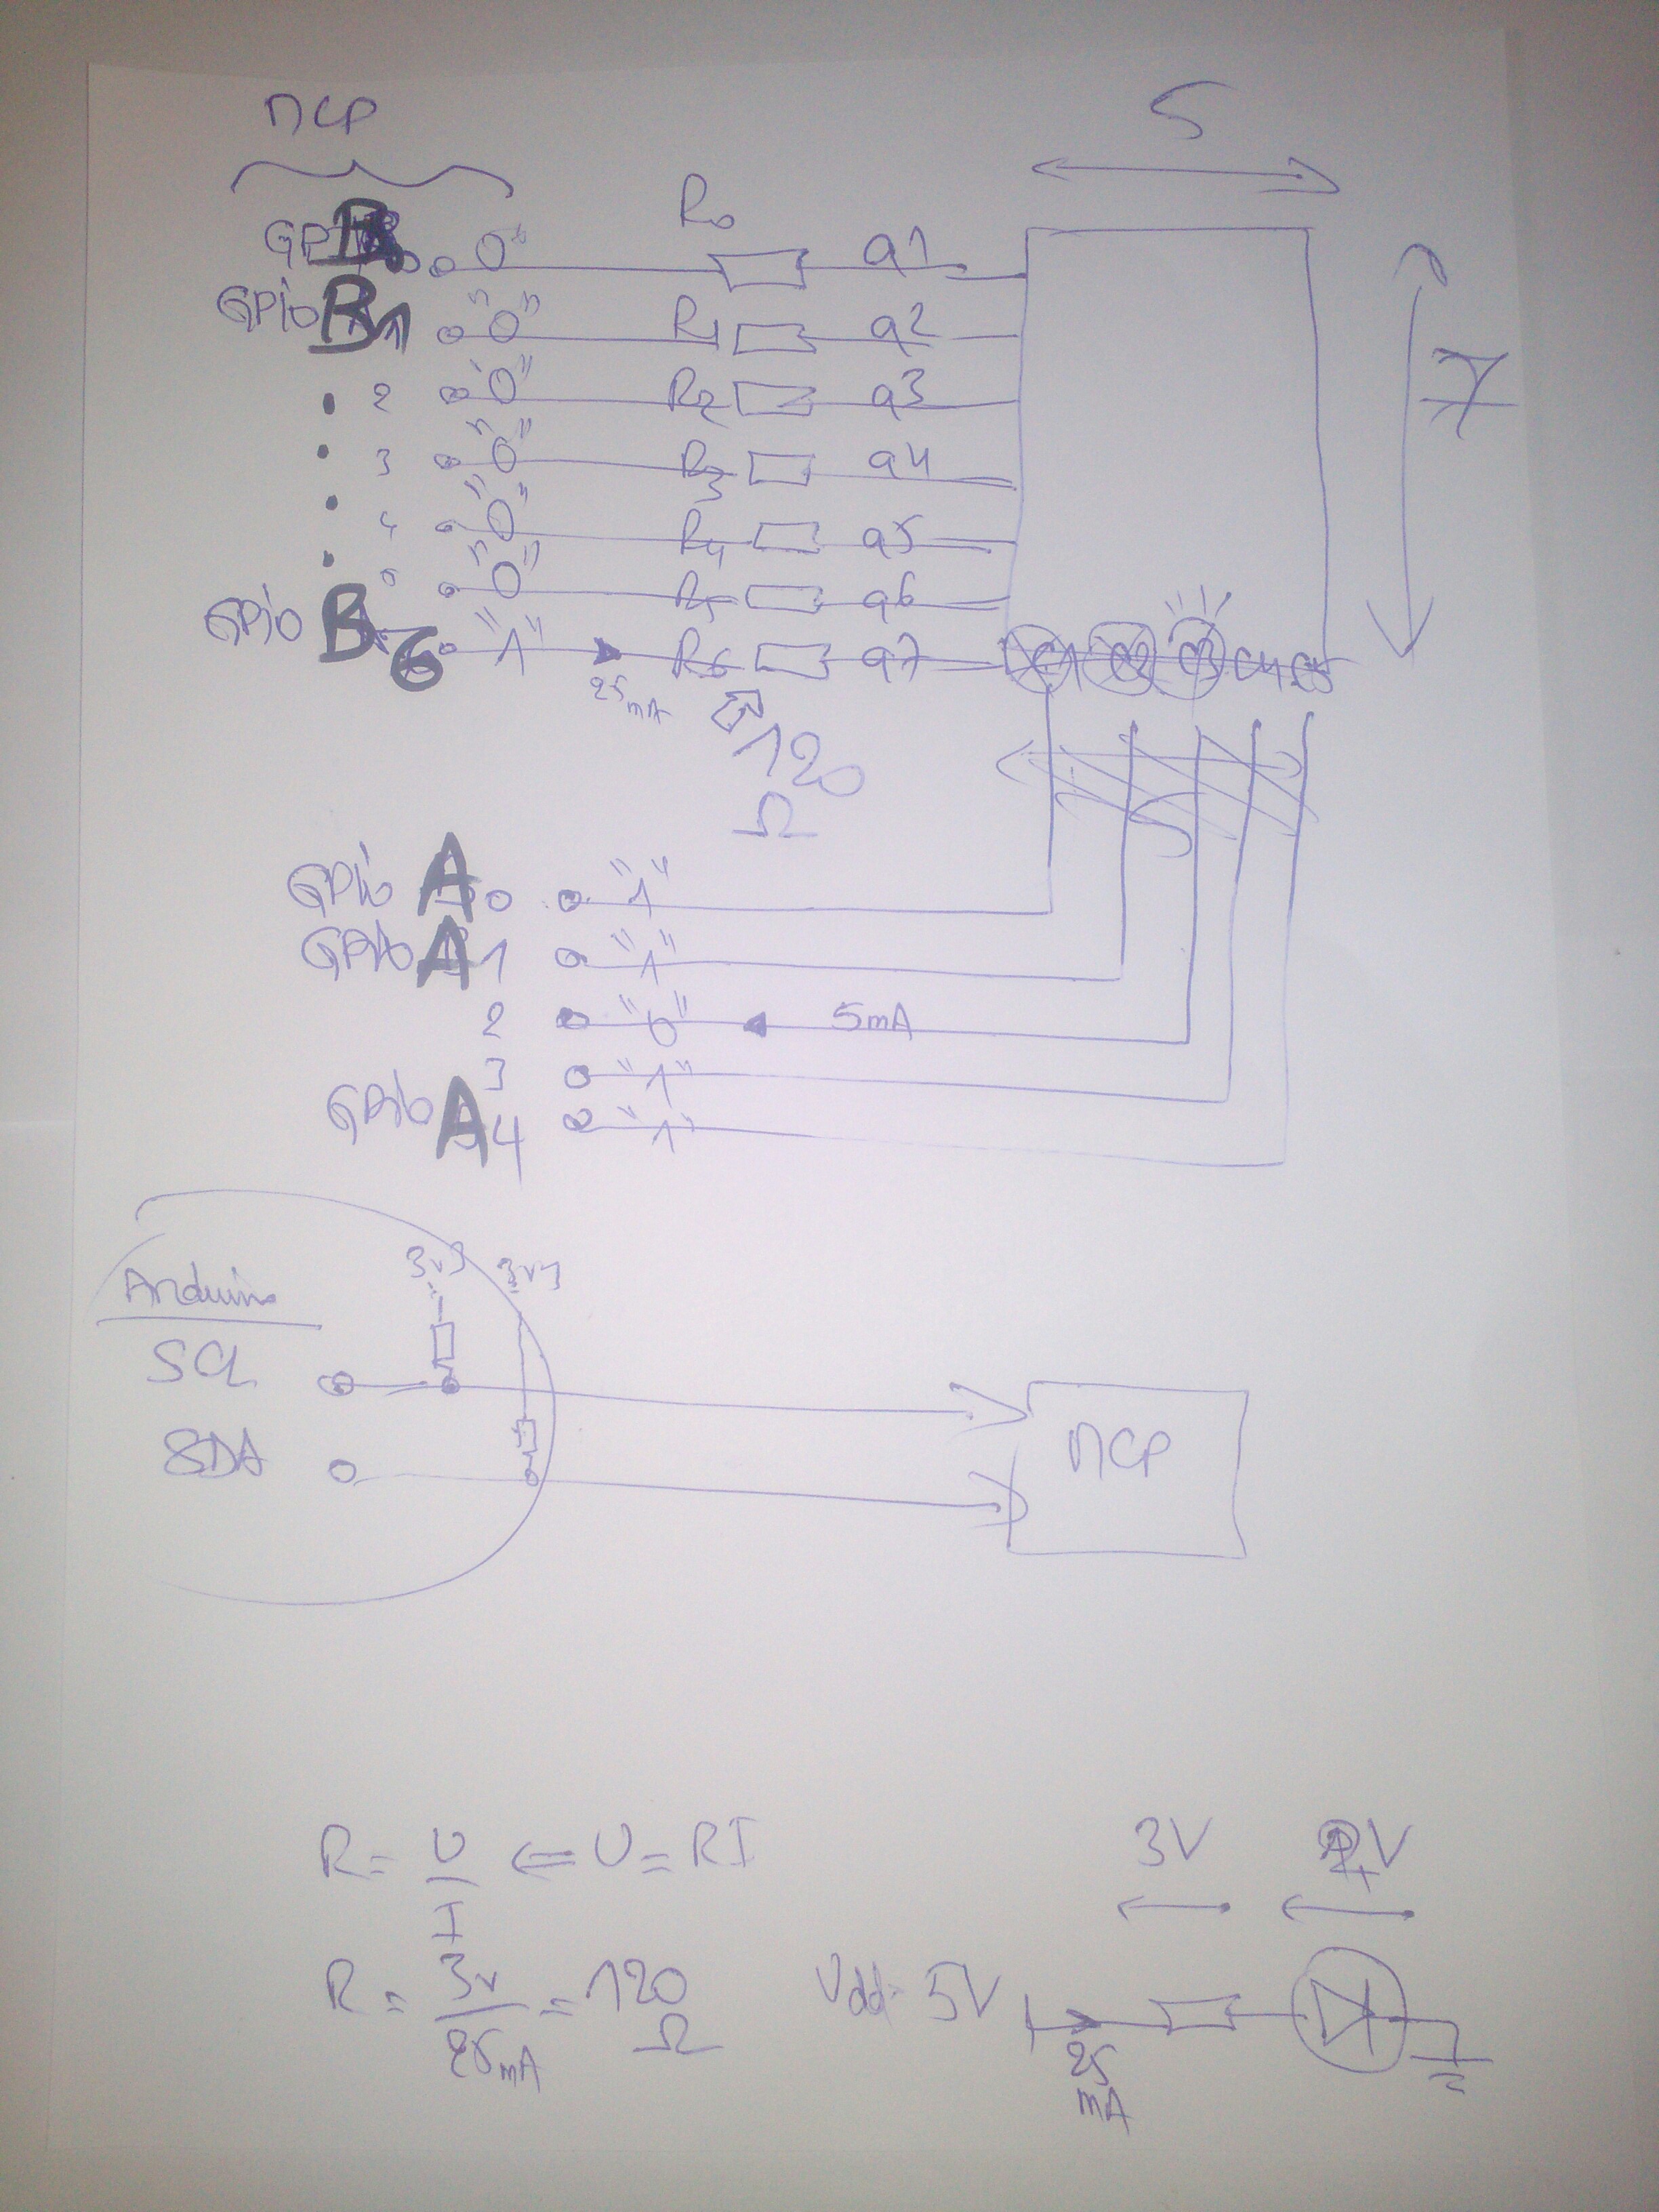 MCP
5
R0
GPIO B0 "0" a1
GPIO B1 "0" R1 a2
7
2 "0" R2 a3
3 "0" R3 a4
4 "0" R4 a5
5 "0" R5 a6
GPIO B6 "1" R6 a7 C1 C2 C3 C4 C5
25mA
120
Ω
GPIO A0 "1"
GPIO A1 "1"
2 "0" 5mA
3 "1"
GPIO A4 "1"
3v3 3v3
Arduino
SCL
SDA
MCP
R = U/I <= U = RI
3V 2V
R = 3v/25mA = 120 Ω
Vdd = 5V
25
mA